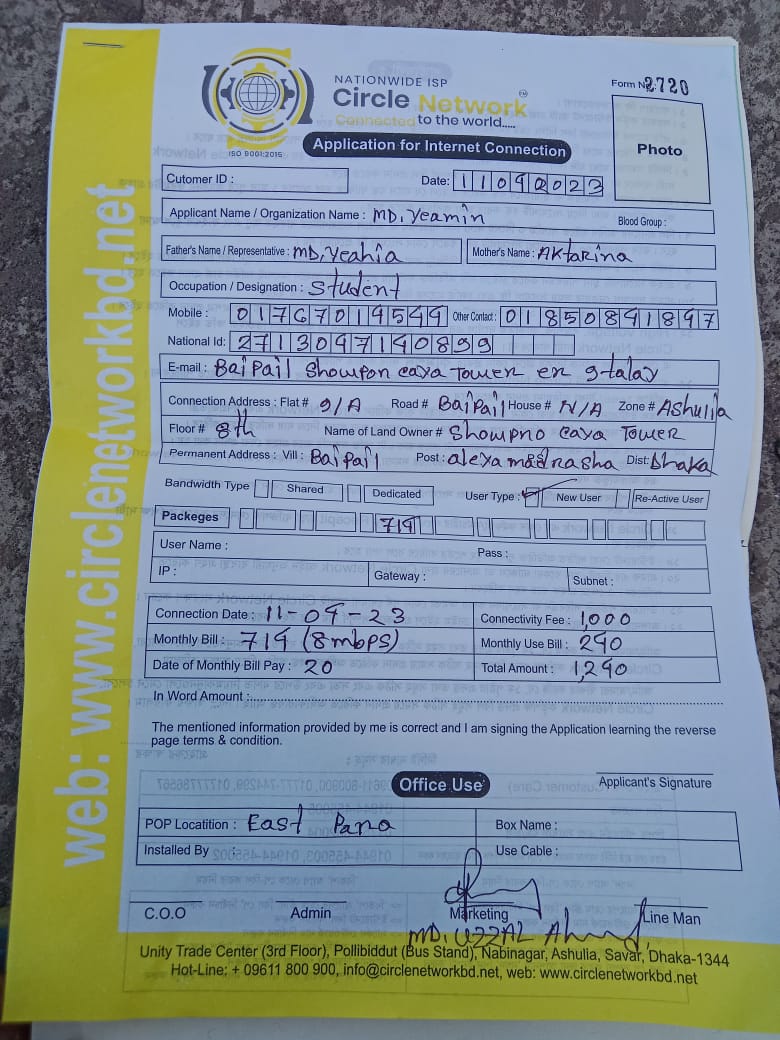 NATIONWIDE ISP
Circle Network
Connected to the world.....
ISO 9001:2015
Form No 2720
Application for Internet Connection
Photo
Cutomer ID :
Date: 11092023
Applicant Name / Organization Name : MD. Yeamin Blood Group :
Father's Name / Representative : MD. Yeahia Mother's Name : Aktarina
Occupation / Designation : Student
Mobile : 01767014544 Other Contact : 01850841847
National Id: 2713047140899
E-mail : Baipail Showpon caya Tower er 9-talay
Connection Address : Flat # 9/A Road # Baipail House # N/A Zone # Ashulia
Floor # 8th Name of Land Owner # Showpno caya Tower
Permanent Address : Vill : Baipail Post : aleya madrasha Dist: Dhaka
Bandwidth Type Shared Dedicated User Type : New User Re-Active User
Packeges 714
User Name : Pass :
IP : Gateway : Subnet :
Connection Date : 11-09-23 Connectivity Fee : 1,000
Monthly Bill : 714 (8mbps) Monthly Use Bill : 240
Date of Monthly Bill Pay : 20 Total Amount : 1,240
In Word Amount :
The mentioned information provided by me is correct and I am signing the Application learning the reverse
page terms & condition.
Applicant's Signature
Office Use
POP Locatition : East Para Box Name :
Installed By : Use Cable :
C.O.O Admin Marketing Line Man
MD. UZZAL Ahmed
Unity Trade Center (3rd Floor), Pollibiddut (Bus Stand), Nabinagar, Ashulia, Savar, Dhaka-1344
Hot-Line: + 09611 800 900, info@circlenetworkbd.net, web: www.circlenetworkbd.net
web: www.circlenetworkbd.net